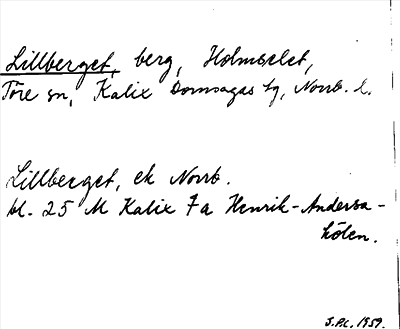 Lillberget, berg, Holmselet,
Töre sn, Kalix Domsagas tg, Norrb. l.
Lillberget, ek Norrb.
bl. 25 M Kalix Fa Henrik-Andersa-
kölen.
J.P.L. 1959.